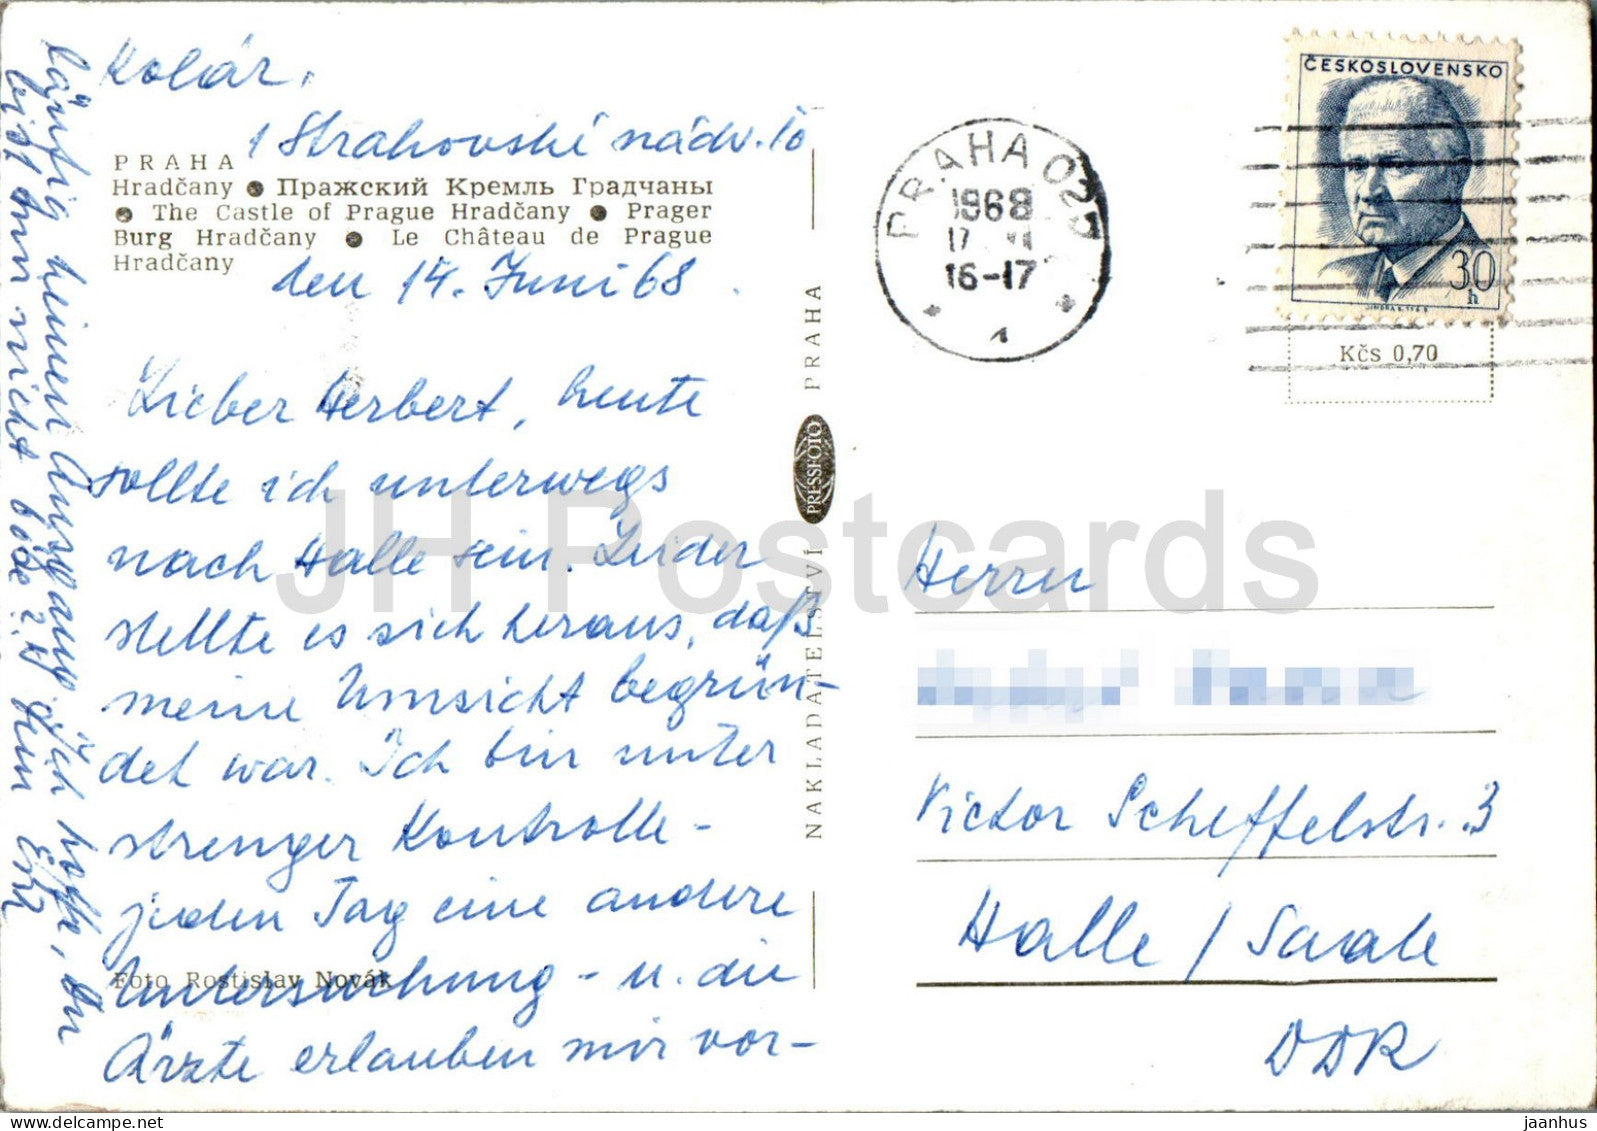 Kolár,
1 Strahovské nádv. 10
PRAHA
Hradčany ● Пражский Кремль Градчаны
● The Castle of Prague Hradčany ● Prager
Burg Hradčany ● Le Château de Prague
Hradčany
den 14. Juni 68.
Lieber Herbert, heute
sollte ich unterwegs
nach Halle sein. Leider
stellte es sich heraus, daß
meine Umsicht begrün-
det war. Ich bin unter
strenger Kontrolle -
jeden Tag eine andere
Untersuchung - u. die
Foto Rostislav Novák
Ärzte erlauben mir vor-
läufig keinen Ausgang. Ich hoffe, Du
bist mir nicht böse?
NAKLADATELSTVÍ PRESSFOTO PRAHA
PRAHA 025
1968
17
16-17
1
ČESKOSLOVENSKO
30
h
Kčs 0,70
Herrn
Victor Scheffelstr. 3
Halle / Saale
DDR
JH Postcards
jaanhus @ www.delcampe.net